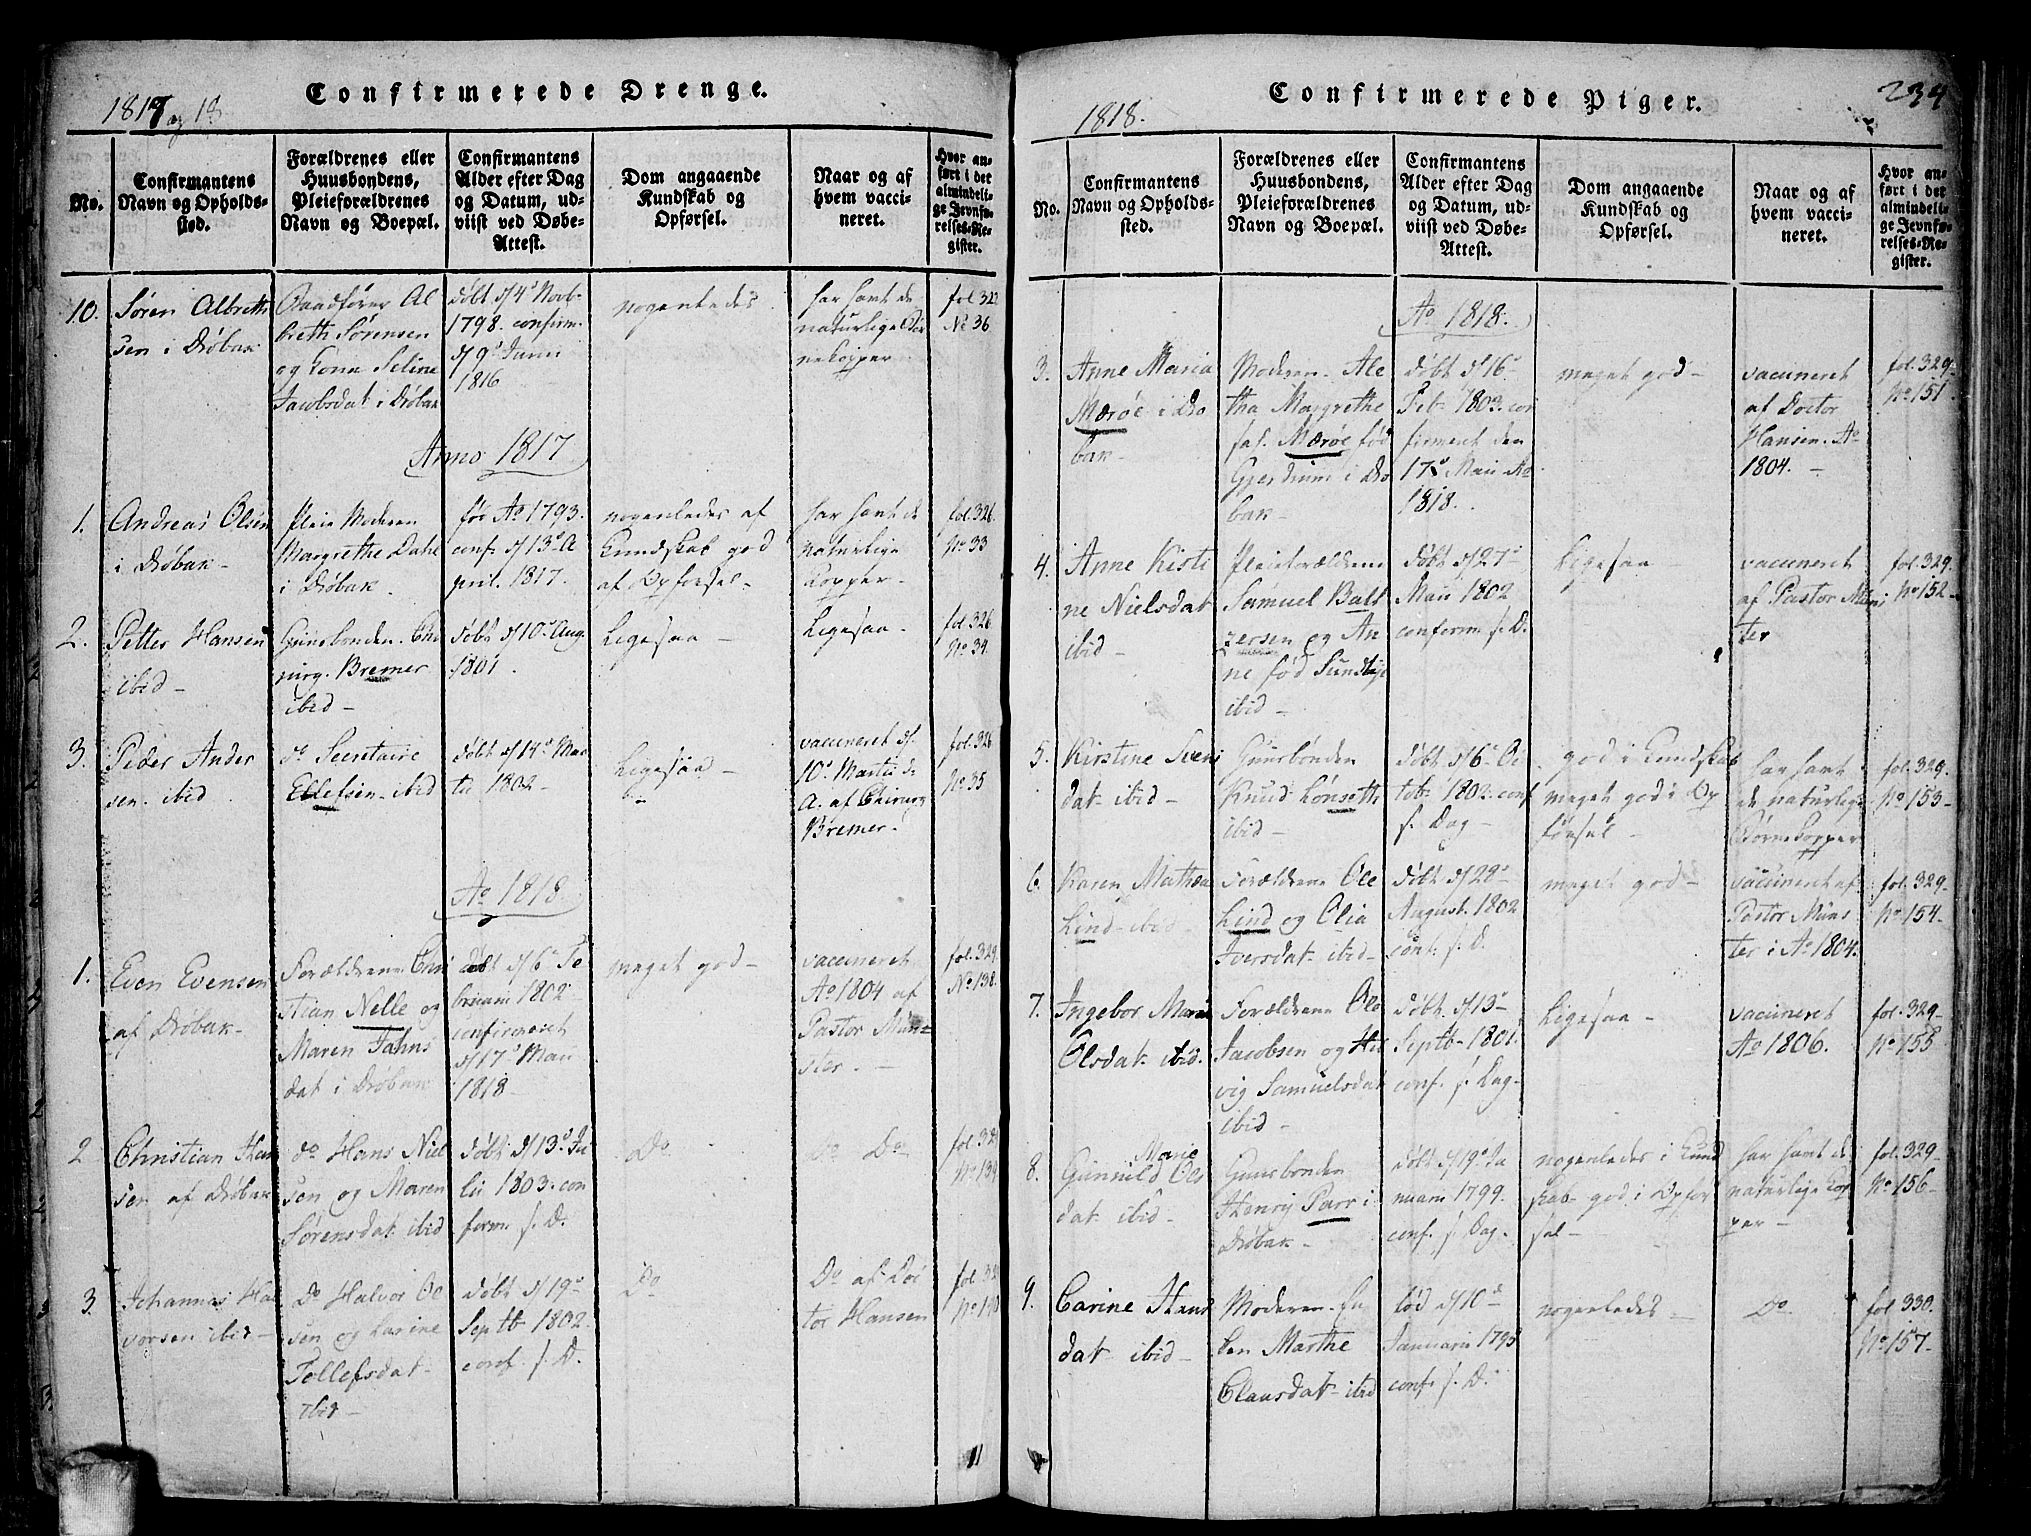 Confirmerede Drenge.
1817 og 18
No.
Confirmantens
Navn og Opholds-
sted.
Forældrenes eller
Huusbondens,
Pleieforældrenes
Navn og Boepæl.
Confirmantens
Alder efter Dag
og Datum, ud-
viist ved Døbe-
Attest.
Dom angaaende
Kundskab og
Opførsel.
Naar og af
hvem vacci-
neret.
Hvor an-
ført i det
almindeli-
ge Jevnfø-
relses-Re-
gister.
10.
Søren Albreth
sen i Drøbak
Al
breth Sørensen
og Kona Seline
Jacobsdat i Drøbak
døbt d/4d Novb.
1798. confirm.
d/9d Junii
1816
nogenledes
har havt de
naturlige Bør
nekopper
fol 322
No 36
Anno 1817
1.
Andreas Olsen
i Drøbak-
Pleie Moderen
Margrethe Dahl
i Drøbak
før Ao 1793.
conf. d/13d A
pril. 1817.
nogenledes af
Kundskab god
af Opførsel-
har havt de
naturlige
Kopper-
fol. 326.
No. 33
2.
Petter Hansen
ibid-
Huusbonden. Chi
rurg. Bremer
ibid-
døbt d/10d Aug.
1801.
Ligesaa-
Ligesaa-
fol. 326
No. 34.
3.
Peder Ander
sen. ibid
do Secretaire
Ellefsen-ibid
døbt d/14d Mar
tii 1802-
Ligesaa-
vaccineret d.
10d Martii
A. af Chirurg
Bremer-
fol. 326
No 35
Ao 1818.
1.
Even Evensen
af Drøbak-
Forældrene Chri
stian Nelle og
Maren Jahns
dat i Drøbak
døbt d/6d Fe
bruarii 1802-
confirmeret
d/17d Maii
1818-
meget god-
vaccineret
Ao 1804 af
Pastor Mün-
ster.-
fol. 329.
No. 138.
2
Christian Han
sen af Drøbak
do Hans Niel
sen og Maren
Sørensdat ibid
døbt d/13d Ju
lii 1803. con
firm. s. D.
Do
Do Do
fol. 329
No 139
3.
Johannes Hal
vorsen ibid-
Do Halvor Ol
sen og Karine
Tollefsdat-
ibid-
døbt d/19d
Septb 1802.
conf. s. D.
Do
Do af Doc
tor Hansen
fol. 329
No 140
Confirmerede Piger.
234
1818.
No.
Confirmantens
Navn og Opholds-
sted.
Forældrenes eller
Huusbondens,
Pleieforældrenes
Navn og Boepæl.
Confirmantens
Alder efter Dag
og Datum, ud-
viist ved Døbe-
Attest.
Dom angaaende
Kundskab og
Opførsel.
Naar og af
hvem vacci-
neret.
Hvor an-
ført i det
almindeli-
ge Jevnfø-
relses-Re-
gister.
Ao 1818.
3.
Anne Maria
Mærøe i Drø
bak-
Moderen- Ale
tha Margrethe
sal. Mærøe fød
Gjerdrum i Drø
bak-
døbt d/16d
Feb. 1803. con
firmeret den
17d Maii Ao
1818.
meget god-
vaccineret
af Doctor
Hansen. Ao
1804.-
fol. 329-
No. 151.
4.
Anne Kirsti
ne Nielsdat
ibid-
Pleieforældrene
Samuel Balt
zersen og An
ne fød Sundbye
ibid-
døbt d/27d
Maii 1802
confirm s. D.
Ligesaa-
vaccineret
af Pastor Müns
ter
fol. 329.
No 152-
5.
Kirstine Svens
dat ibid-
Huusbonden
Knud Lønseth
ibid-
døbt d/6d Oc
tob. 1802. conf
s. Dag-
god i Kundskab
meget god i Op
førsel-
har havt
de naturlige
Børnekopper
fol. 329.
No. 153-
6.
Karen Mathea
Lind-ibid-
Forældrene Ole
Lind og Olia
Iversdat-ibid-
døbt d/22d
August. 1802
conf. s. D.
meget god-
vaccineret af
Pastor Müns
ter i Ao 1804.
fol. 329-
No. 154-
7.
Ingebor Maria
Olsdat ibid.
Forældrene Ole
Jacobsen og Hel
vig Samuelsdat
ibid-
døbt d/13d
Septb-1801.
conf. s. Dag-
Ligesaa-
vaccineret
Ao 1806.
fol. 329-
No 155
8.
Marie
Gunnild Ols
dat ibid-
Huusbonden
Henrij Parr i
Drøbak-
døbt d/19d Ja
nuarii 1799.
conf. s. Dag.
nogenledes i Kund
skab- god i Opfør
sel-
har havt de
naturlige Kop
per-
fol. 329-
No. 156-
9.
Carine Hans
dat ibid-
Moderen- En
ken Marthe
Clausdat-ibid
fød d/10d
Januarii 1795
conf. s. D.
nogenledes-
Do
fol 330.
No. 157-